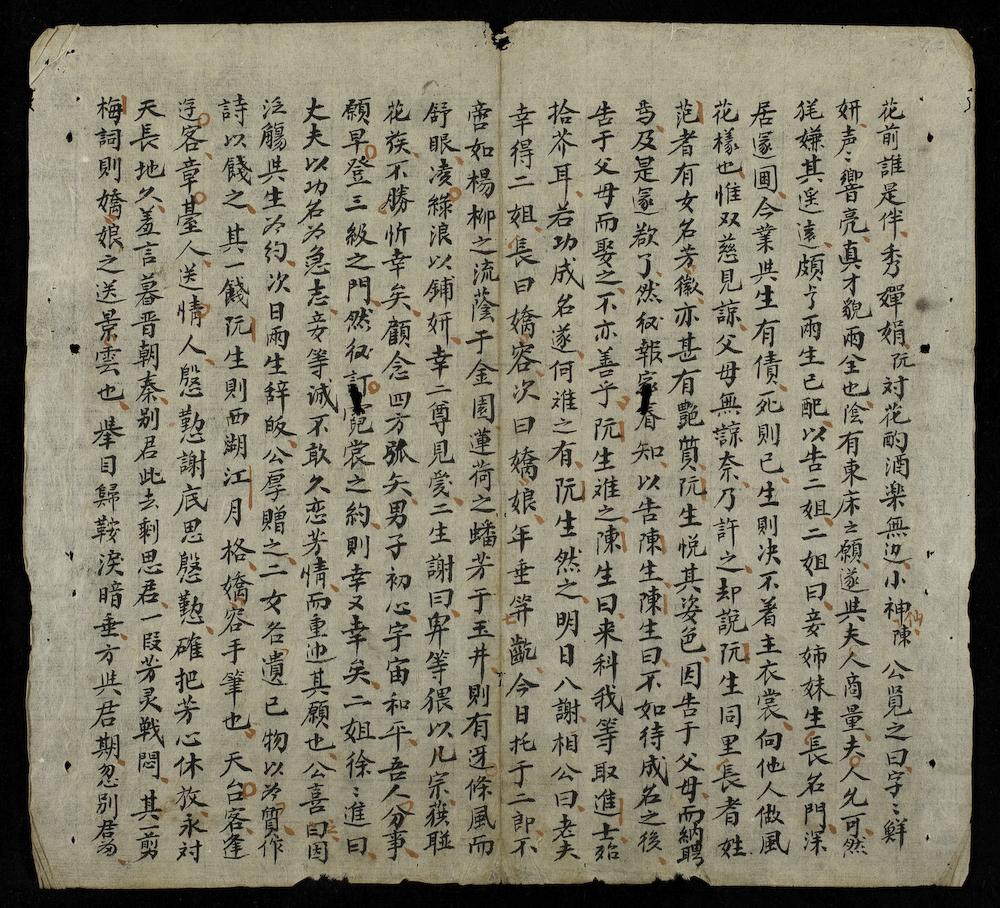 花前誰是伴秀嬋娟阮对花酌酒楽無边小神仙陳公覓之曰字〻鮮
妍声〻響亮真才貌両全也陰有東床之願遂共夫人商量夫人允可然
嫌其遥遠頗与両生已配以告二姐二姐曰妾姉妹生長名門深
居邃囲今業共生有債死則已生則决不着主衣裳向他人做風
花様也惟双慈見諒父母無諒奈乃許之却說阮生同里長者姓
范者有女名芳徽亦甚有艶質阮生悦其姿色因告于父母而納聘
焉及是邃欲了然後報家眷知以告陳生陳生曰不如待成名之後
告于父母而娶之不亦善乎阮生难之陳生曰来科我等取進士殆
拾芥耳若功成名遂何难之有阮生然之明日入謝相公曰老夫
幸得二姐長曰嬌容次曰嬌娘年垂笄齓今日托于二郎不
啻如楊柳之流蔭于金園蓮荷之蟠芳于玉井則有迓條風而
舒眼凌綠浪以鋪妍幸二尊見愛二生謝曰卑等猥以凡宗獲聯
花族不勝忻幸矣顧念四方弧矢男子初心宇宙和平吾人分事
願早登三級之門然後訂霓裳之約則幸又幸矣二姐徐〻進曰
丈夫以功名為急志妾等誠不敢久恋芳情而重迆其願也公喜曰因
泛觴共生為約次日両生辞皈公厚贈之二女各遺已物以為贄作
詩以餞之其一餞阮生則西湖江月格嬌容手筆也天台客逢
迓客章䑓人送情人慇懃謝底思慇懃確把芳心休放永对
天長地久羞言暮晋朝秦別君此去剩思君一段芳灵戦悶其一剪
梅詞則嬌娘之送景雲也舉目歸鞍淚暗垂方共君期忽別君為